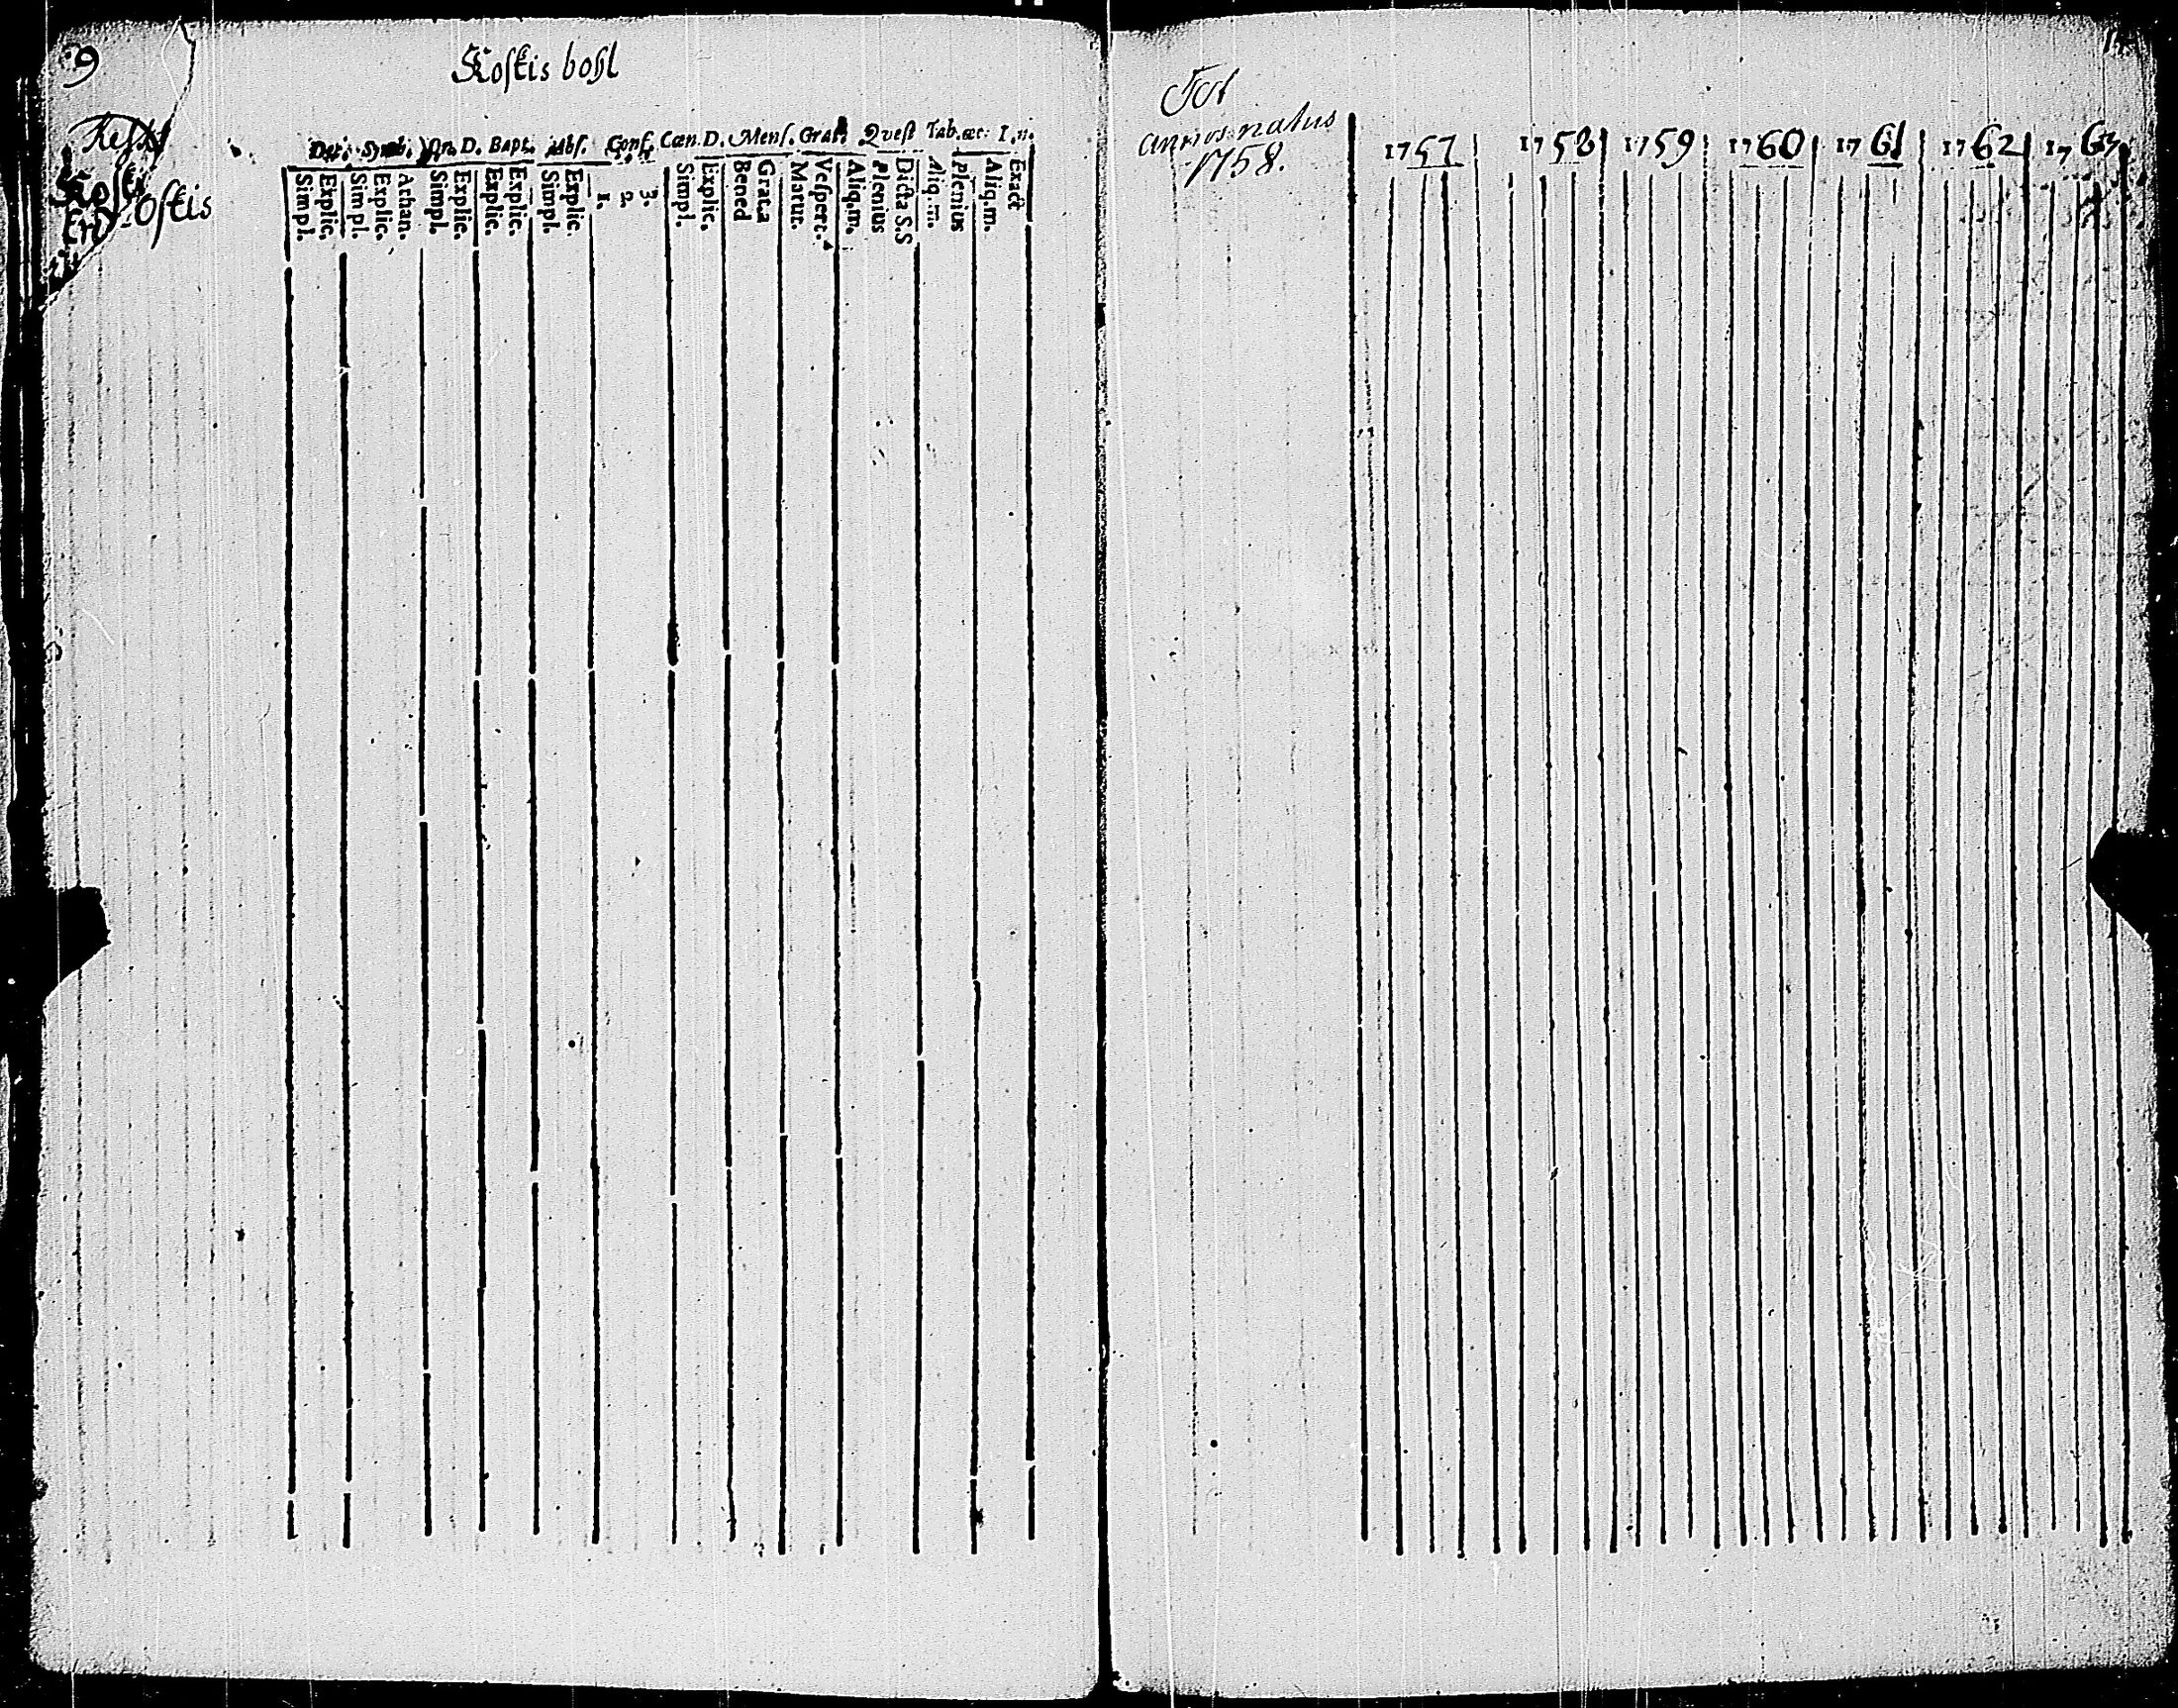 9
Koſkis bohl
Koſki
Oſkis
Dec. Symb. Or. D. Bapt. Abſ. Conf. Cœn. D. Menſ. Grat. Quæſt Tab. œc: I. n.
Simpl.
Explic.
Simpl.
Explic.
Athan.
Simpl.
Explic.
Explic.
Explic.
Simpl.
Explic.
1.
2.
3.
Simpl.
Explic.
Bened
Grata
Matut.
Veſpert.
Aliq.m.
Plenius
Dicta S.S
Aliq.m.
Plenius
Aliq.m.
Exact
Tot
annos natus
1758.
1757 1758 1759 1760 1761 1762 1763